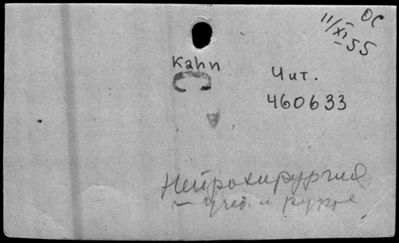 ОС
11/XI-55
Kahn
С
Чит.
460633
Нейрохирургия
— учеб. и руков